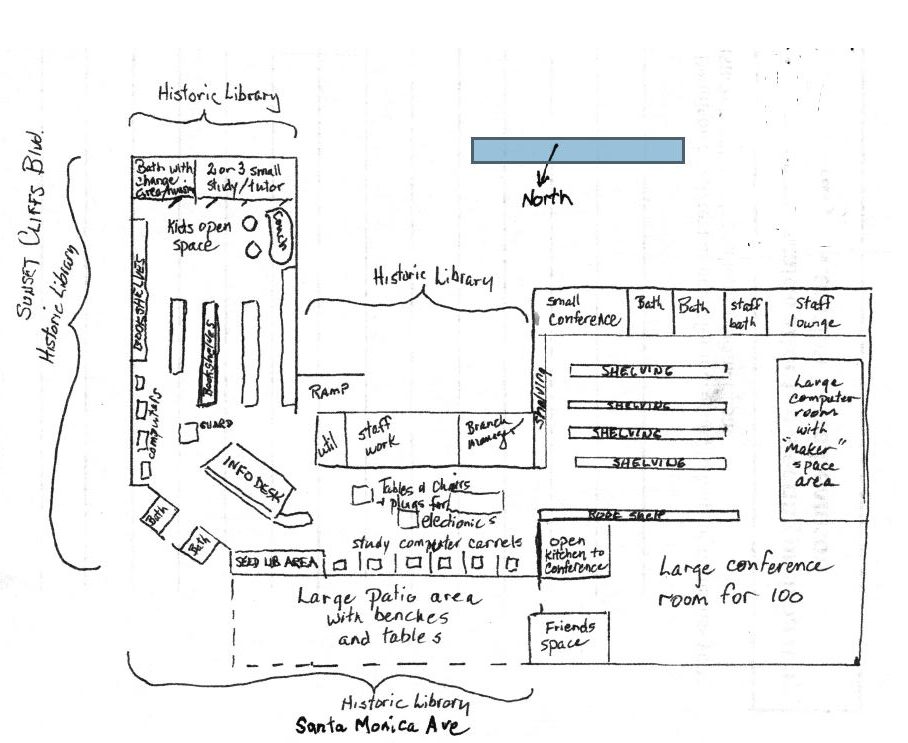 Historic Library
SUNSET CLIFFS Blvd.
Historic Library
Bath with
change
area/
2 or 3 small
study/tutor
Kids open
space
Couch
North
Historic Library
BOOKSHELVES
Bookshelves
computers
GUARD
INFO DESK
Bath
Bath
RAMP
util
staff
work
Branch
manager
small
conference
Bath
Bath
staff
bath
Staff
lounge
shelving
SHELVING
SHELVING
SHELVING
SHELVING
Large
computer
room
with
"Maker"
space
area
Tables & Chairs
+ plugs for
electionic s
study computer carrels
SEED LIB AREA
open
kitchen to
conference
Large conference
room for 100
Large Patio area
with benches
and table s
Friends
space
Historic Library
Santa Monica Ave